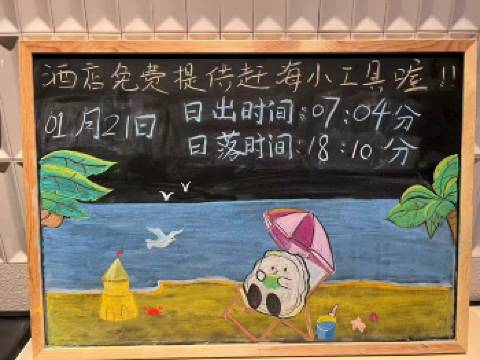 酒店免费提供赶海小工具喔!!
01月21日
日出时间:07:04分
日落时间:18:10分